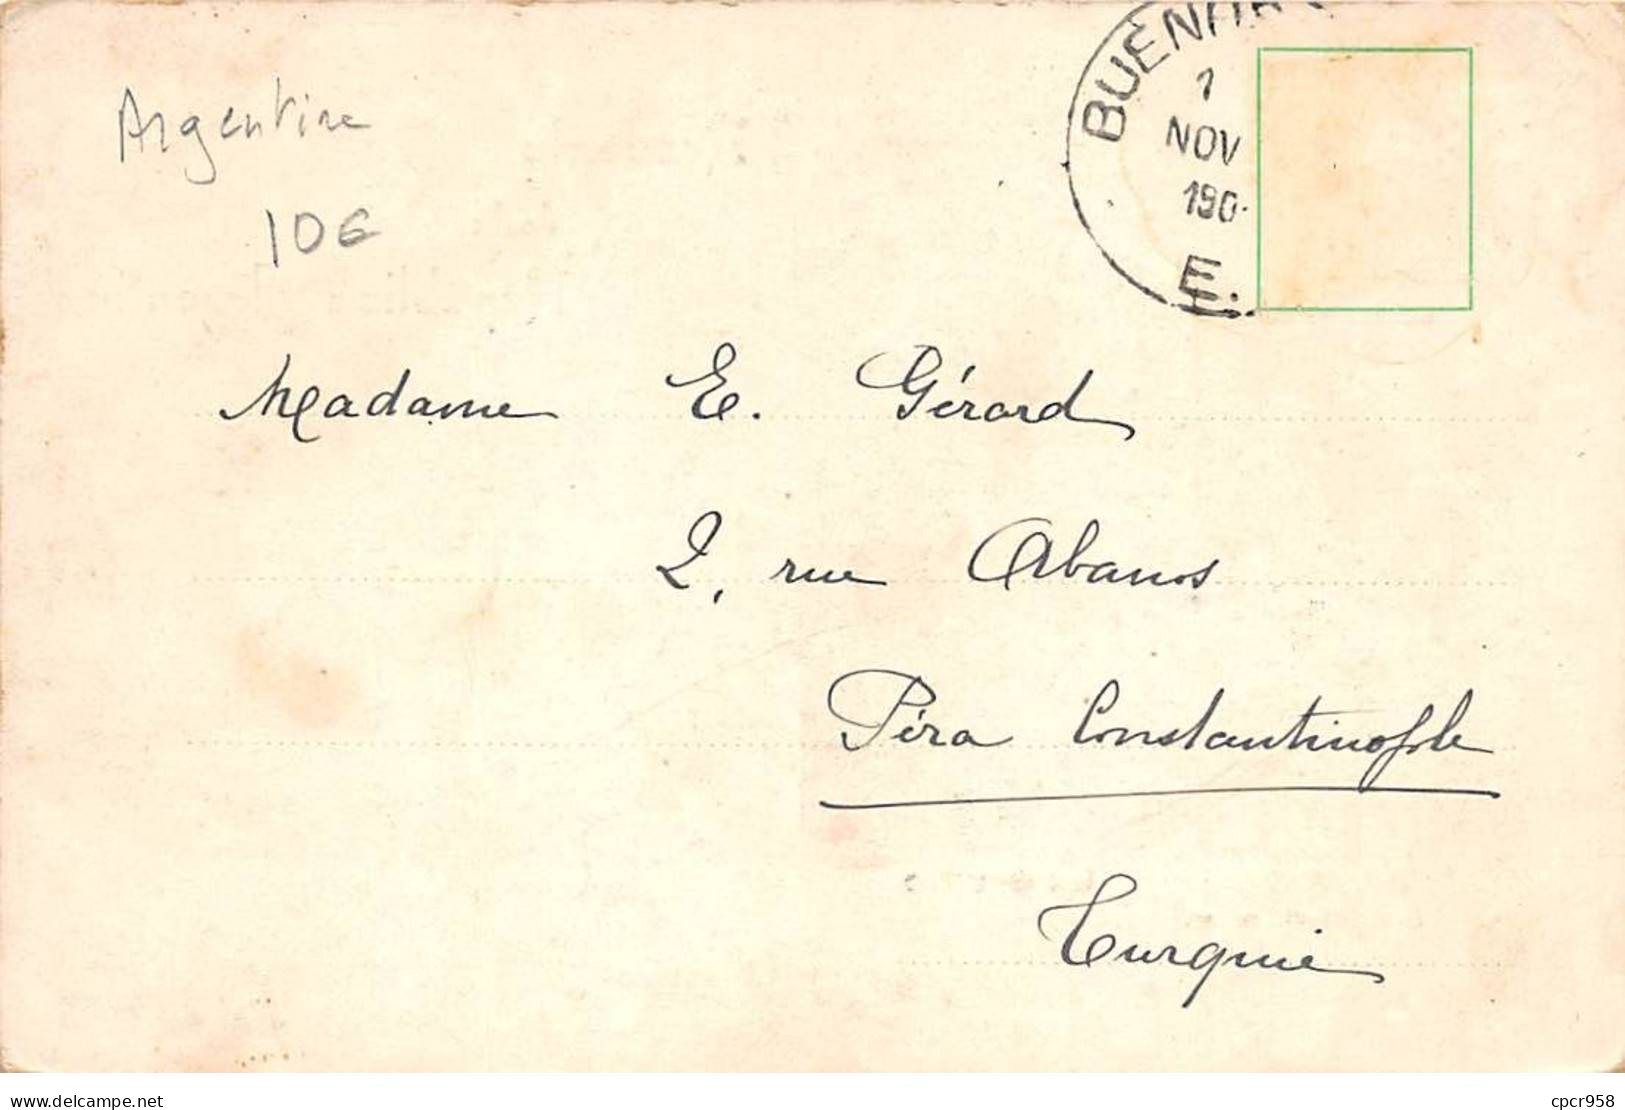 BUENO
1
NOV
190
E.
Argentine
10€
Madame E. Gérard
2, rue Abanos
Péra Constantinople
Turquie
www.delcampe.net
cpcr958